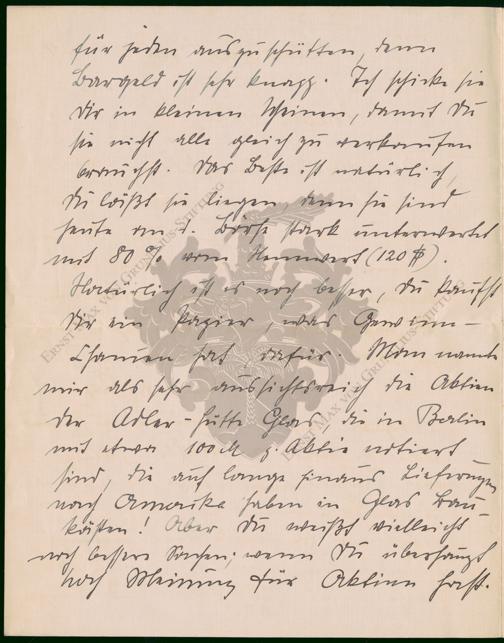 für jeden auszuschütten, denn
Bargeld ist sehr knapp. Ich schicke sie
Dir in kleinen Scheinen, damit Du
sie nicht alle gleich zu verkaufen
brauchst. Das Beste ist natürlich,
Du läßt sie liegen, denn sie sind
heute an d. Börse stark unterwertet
mit 80% vom Nennwert (120 ).
Natürlich ist es noch besser, Du kaufst
Dir ein Papier, was Gewinn-
Chancen hat dafür. Man nannte
mir als sehr aussichtsreich die Aktien
der Adler-Hütte Glas, die in Berlin
mit etwa 100 M p. Aktie notiert
sind, die auf lange hinaus Lieferungen
nach Amerika haben in Glas Bau-
kästen! Aber Du weißt vielleicht
noch bessere Sachen, wenn Du überhaupt
noch Meinung für Aktien hast.
ERNST MAX VON GRUNELIUS-STIFTUNG
ERNST MAX VON GRUNELIUS-STIFTUNG